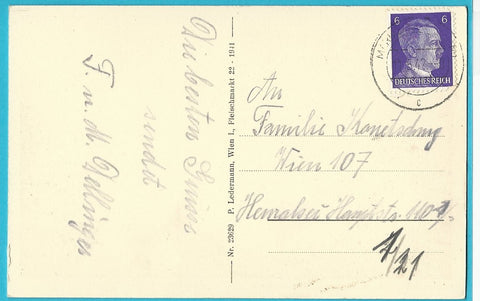 Die besten Grüsse
sendet
F. u. M. Dellinger
Nr. 23629 P. Ledermann, Wien I., Fleischmarkt 22 - 1941
An
Familie
Wien 107
Hernalser Hauptstr.
7/21
6 6
DEUTSCHES REICH
c